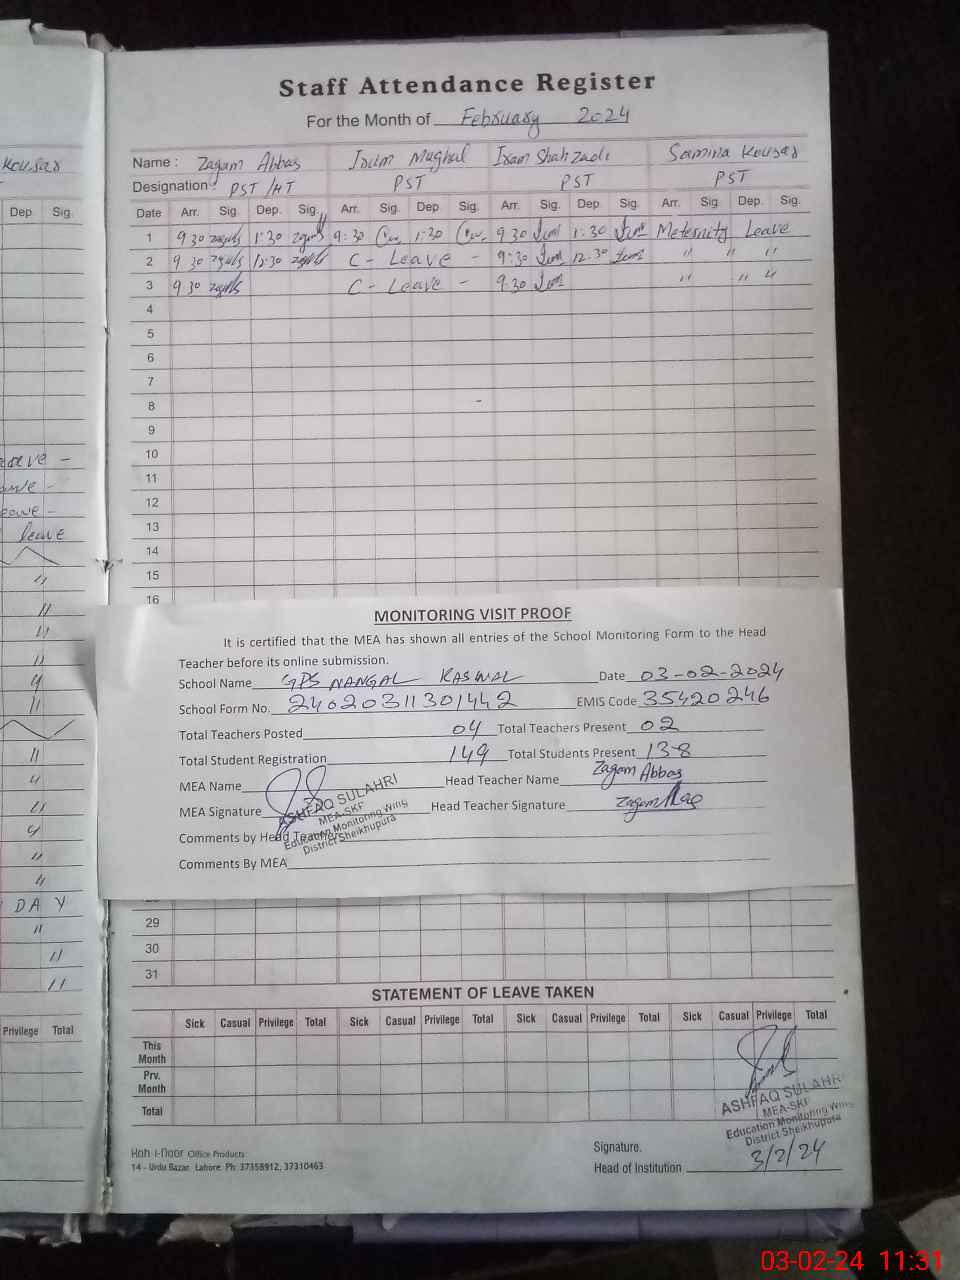 Staff Attendance Register
For the Month of February 2024
Kousar
Name : Zagam Abbas Irum Mughal Iram Shahzadi Samina Kousar
Designation : PST/HT PST PST PST
Dep Sig.
Date Arr. Sig. Dep. Sig. Arr. Sig. Dep. Sig. Arr. Sig. Dep. Sig. Arr. Sig. Dep. Sig.
1 9 30 1:30 9:30 1:30 9 30 1:30 Meternity Leave
2 9 30 12:30 C - Leave - 9:30 12.30 " " "
3 9.30 C - Leave - 9.30 " " "
4
5
6
7
8
9
10
11
12
13
14
15
16
leave
DAY
MONITORING VISIT PROOF
It is certified that the MEA has shown all entries of the School Monitoring Form to the Head
Teacher before its online submission.
School Name GPS NANGAL KASWAL Date 03-02-2024
School Form No. 24020311301442 EMIS Code 35420246
Total Teachers Posted 04 Total Teachers Present 02
Total Student Registration 149 Total Students Present 138
MEA Name Head Teacher Name Zagam Abbas
MEA Signature Head Teacher Signature
ASHFAQ SULAHRI
MEA-SKP
Education Monitoring Wing
District Sheikhupura
Comments by Head Teacher
Comments By MEA
29
30
31
STATEMENT OF LEAVE TAKEN
Privilege Total
Sick Casual Privilege Total Sick Casual Privilege Total Sick Casual Privilege Total Sick Casual Privilege Total
This Month
Prv. Month
Total
ASHFAQ SULAHRI
MEA-SKP
Education Monitoring Wing
District Sheikhupura
3/2/24
Koh-i-Noor Office Products
14 - Urdu Bazar, Lahore. Ph: 37358912, 37310463
Signature.
Head of Institution
03-02-24 11:31